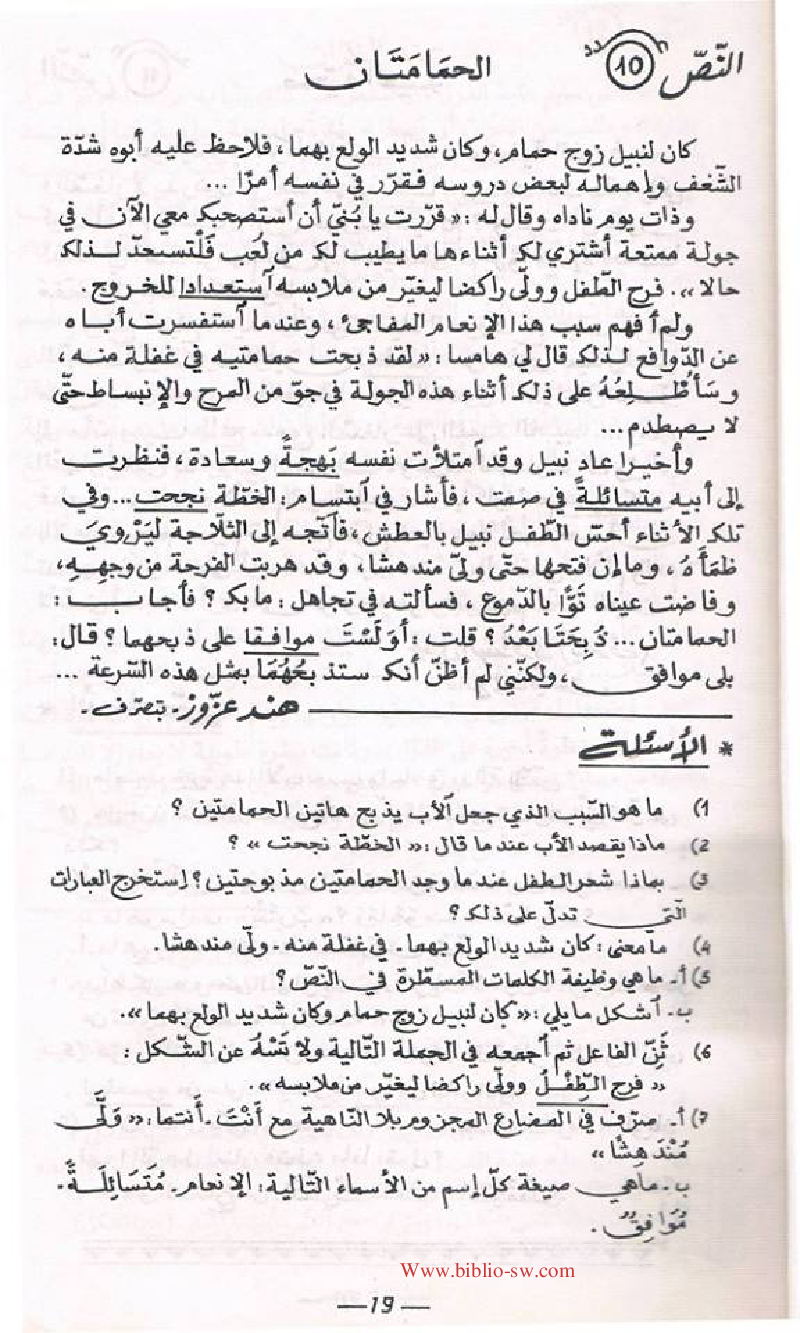 النّصّ 10 الحمامَتَان
كان لنبيل زوج حمام، وكان شديد الولع بهما، فلاحظ عليه أبوه شدّة
الشّغف وإهماله لبعض دروسه فقرّر في نفسه أمرًا ...
وذات يوم ناداه وقال له: « قرّرت يا بُنيّ أن أستصحبك معي الآن في
جولة ممتعة أشتري لك أثناءها ما يطيب لك من لُعب فَلْتستعدّ لـذلك
حالا ». فرح الطّفل وولّى راكضا ليغيّر من ملابسه آستعدادا للخروج.
ولم أفهم سبب هذا الإنعام المفاجئ، وعندما آستفسرت أبــاه
عن الدّوافع لـذلك قال لي هامسا: « لقد ذبحت حمامتيه في غفلة منه،
وسَأُطْـلِعُهُ على ذلك أثناء هذه الجولة في جوّ من المرح والإنبساط حتّى
لا يـصطدم ...
وأخيـرا عاد نبيل وقد آمتلأت نفسه بَهجةً وسعادة، فنظرت
إلى أبيه متسائلةً في صمت، فأشار في آبتسام: الخطّة نجحت ... وفي
تلك الأثناء أحسّ الطّفـل نبيل بالعطش، فآتّجه إلى الثّلاجة لِيَرْوِيَ
ظَمَأَهُ، وما إن فتحها حتّى ولّى مندهشا، وقد هربت الفرحة من وجهِهِ،
وفاضت عيناه تَوًّا بالدّموع، فسألته في تجاهل: ما بك؟ فأجـا ب:
الحمامتان ... ذُبِحَتَا بَعْدُ؟ قلت: أوَلَسْتَ موافـقـا على ذبحهما؟ قال:
بلى موافق، ولكنّني لم أظنّ أنك ستذبحُهُمَا بمثل هذه السّرعة ...
هند عزّوز. بتصرّف.
* الأسئلة
1) ما هو السّبب الذي جعل الأب يذبح هاتين الحمامتين؟
2) ماذا يقصد الأب عندما قال: « الخطّة نجحت »؟
3) بماذا شعر الطفل عندما وجد الحمامتين مذبوحتين؟ إستخرج العبارات
الّتي تدلّ على ذلك؟
4) ما معنى: كان شديد الولع بهما. في غفلة منه. ولّى مندهشا.
5) أ. ما هي وظيفة الكلمات المسطّرة في النّصّ؟
ب. آشكل ما يلي: « كان لنبيل زوج حمام وكان شديد الولع بهما ».
6) ثَنِّ الفاعل ثم آجمعه في الجملة التّالية ولا تَسْهُ عن الشّكل:
« فرح الطِّفْلُ وولّى راكضا ليغيّر من ملابسه ».
7) أ. صرّف في المضارع المجزوم بلا النّاهية مع أَنْتَ. أنتما: « وَلَّى
مُنْدَهِشًا »
ب. ماهي صيغة كلّ إسم من الأسماء التّالية: الإنعام. مُتَسَائِلَةً.
مُوَافِقٌ.
Www.biblio-sw.com
—19—